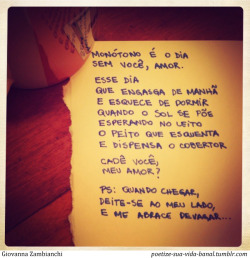 MONÓTONO É O DIA
SEM VOCÊ, AMOR.
ESSE DIA
QUE ENGASGA DE MANHÃ
E ESQUECE DE DORMIR
QUANDO O SOL SE PÕE
ESPERANDO NO LEITO
O PEITO QUE ESQUENTA
E DISPENSA O COBERTOR
CADÊ VOCÊ,
MEU AMOR?
PS: QUANDO CHEGAR,
DEITE-SE AO MEU LADO,
E ME ABRACE DEVAGAR...
Giovanna Zambianchi
poetize-sua-vida-banal.tumblr.com